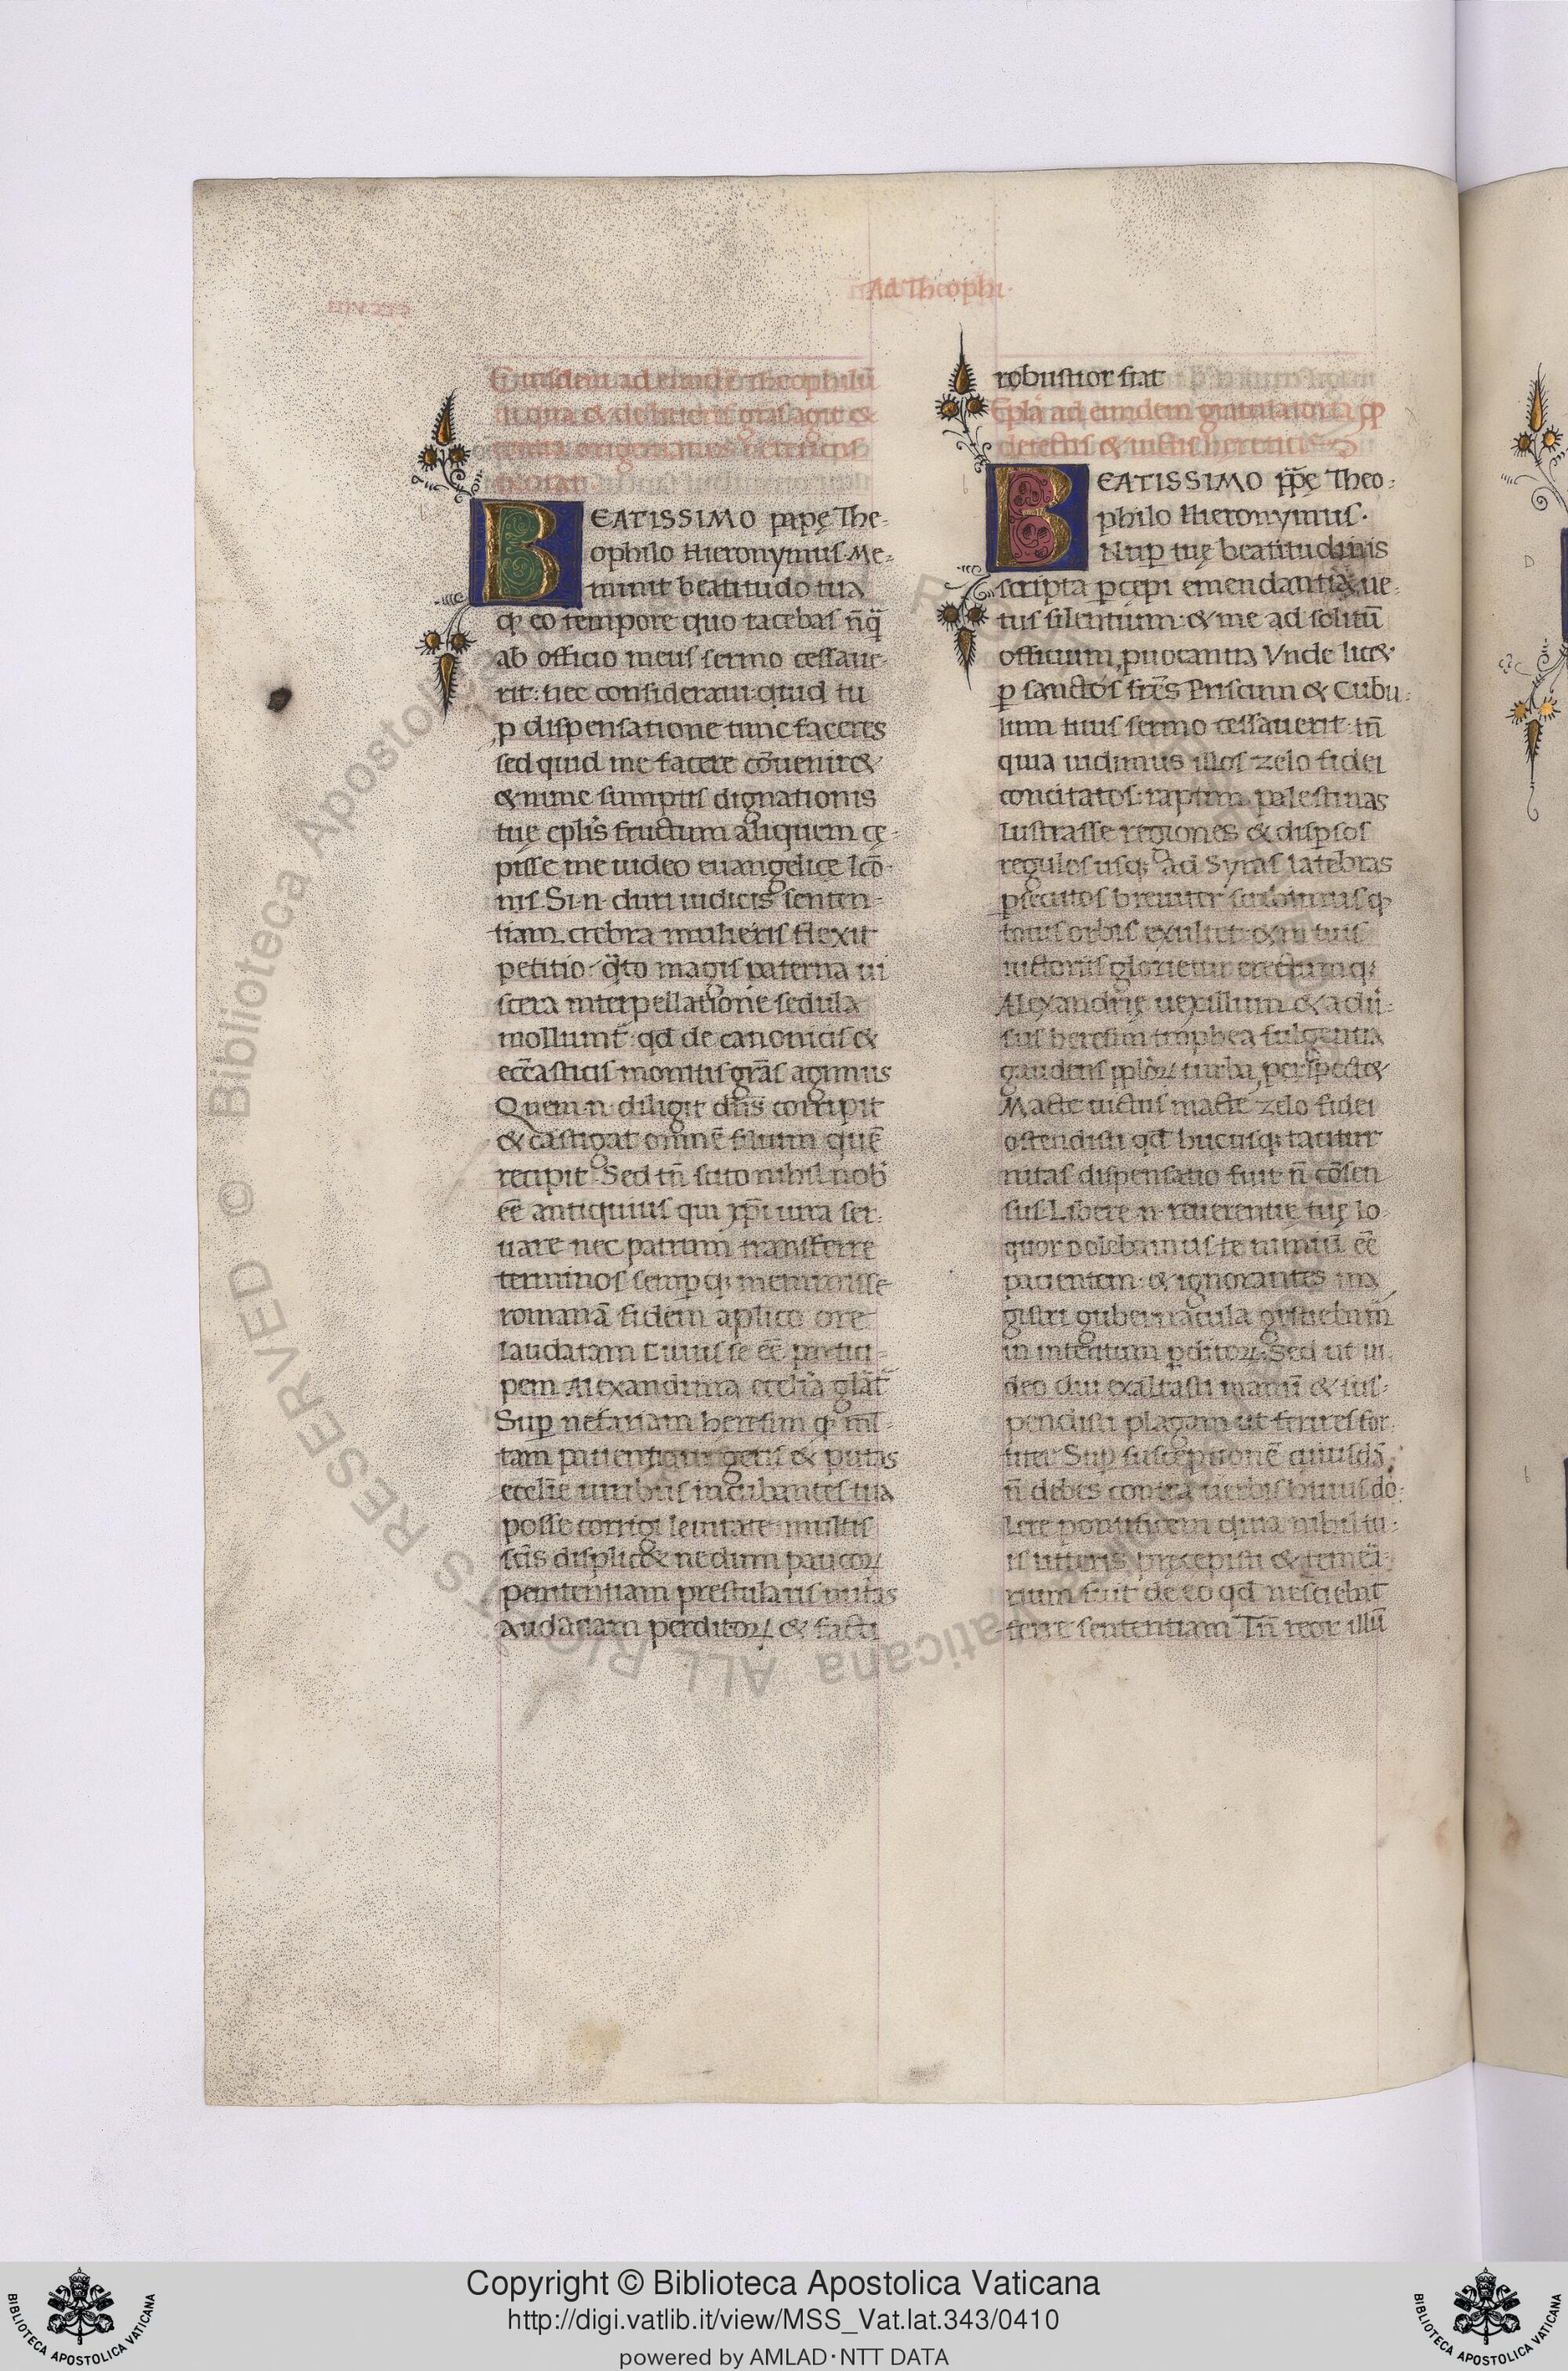 Ad Theophi·
Eiusdem ad eund̄e Theophilū
in qua & de literis gr̄as agit &
contra origenianos hereticos
BEATISSIMO papę The-
ophilo Hieronymus. Me-
minit beatitudo tua
ꝙ eo tempore quo tacebas nūq̄
ab officio meus sermo cessaue-
rit: nec consideraui quid tu
ꝓ dispensatione tunc faceres
sed quid me facere cōuenir&
& nunc sumptis dignationis
tuę eplīs fructum aliquem cę-
pisse me uideo euangelicę lcō-
nis. Si .n. duri iudicis senten-
tiam crebra mulieris flexit
petitio: q̄to magis paterna ui
scera interpellatione sedula
molliunt̄: qd̄ de canonicis &
ecc̄asticis monitis gr̄as agimus
Quem .n. diligit dn̄s corripit
& castigat omnē filium quē
recipit. Sed tn̄ scito nihil nob̄
eē antiquius qui xp̄i iura ser-
uare nec patrum transferre
terminos semꝑq; meminisse
romanā fidem aplīco ore
laudatam cuius se eē partici-
pem Alexandrina ecclīa gl̄at̄
Suꝑ nefariam heresim ꝙ ml̄-
tam patientiam geris & putas
ecclīe uisceribus incubantes tua
posse corrigi leuitate multis
sc̄is displic& ne dum paucoꝝ
penitentiam prestularis nutrias
audaciam perditoꝝ & facti
robustior fiat
Eplā ad eundem gratulatoria ꝓ
detectis & uictis hereticis
BEATISSIMO pp̄ę Theo-
philo Hieronymus·
Nuꝑ tuę beatitudinis
scripta ꝑcepi emendantia ue-
tus silentium: & me ad solitū
officium ꝓuocantia Vnde lic&
ꝑ sanctos fr̄es Priscum & Cubu-
lum tuus sermo cessauerit tn̄
quia uidimus illos zelo fidei
concitatos: raptim palestinas
lustrasse regiones & dispsos
regulos usq; ad Syrias latebras
ꝑsecutos breuiter scribimus ꝙ
totus orbis exultet: & in tuis
uictoriis glorietur erectumq;
Alexandrię uexillum & adū-
sus heresim trophea fulgentia
gaudens pplōꝝ turba ꝓspect&
Macte uirtus macte zelo fidei
ostendisti qd̄ hucusq; tacitur
nitas dispensatio fuit n̄ cōsen
sus. Libere .n. reuerentię tuę lo
quor dolebamus te nimiū eē
patientem: & ignorantes ma
gistri gubernacula gestiebam̄
in interitum ꝑditoꝝ. Sed ut ui
deo diu exaltasti manū & sus-
pendisti plagam ut ferires for
titer Suꝑ susceptionē cuiusdā
n̄ debes contra urbis huius do-
lere pontificem quia nihil tu-
is litteris pręcepisti & temera-
rium fuit de eo qd̄ nesciebat
ferre sententiam Tn̄ reor illū
© Biblioteca Apostolica Vaticana ALL RIGHTS RESERVED
Copyright © Biblioteca Apostolica Vaticana
http://digi.vatlib.it/view/MSS_Vat.lat.343/0410
powered by AMLAD·NTT DATA
BIBLIOTECA APOSTOLICA VATICANA
BIBLIOTECA APOSTOLICA VATICANA